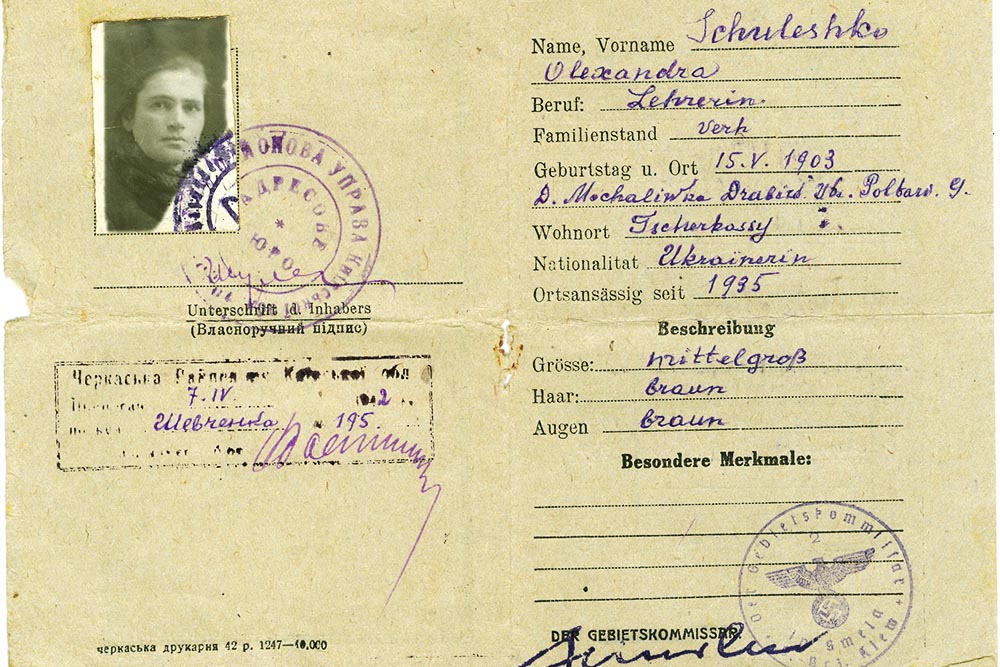 Unterschrift d. Inhabers
(Власноручний підпис)
Черкаська обл
7.IV. 2
Шевченка 195
черкаська друкарня 42 р. 1247—10,000
ОНОВА УПРАВА
АДРЕСОВЕ
БЮРО
Name, Vorname Schuleshko
Olexandra
Beruf: Lehrerin
Familienstand verh
Geburtstag u. Ort 15.V. 1903
D. Mochaliwka Poltaw. G.
Wohnort Tscherkassy
Nationalitat Ukrainerin
Ortsansässig seit 1935
Beschreibung
Grösse: mittelgroß
Haar: braun
Augen braun
Besondere Merkmale:
Der Gebietskommissar
DER GEBIETSKOMMISSAR